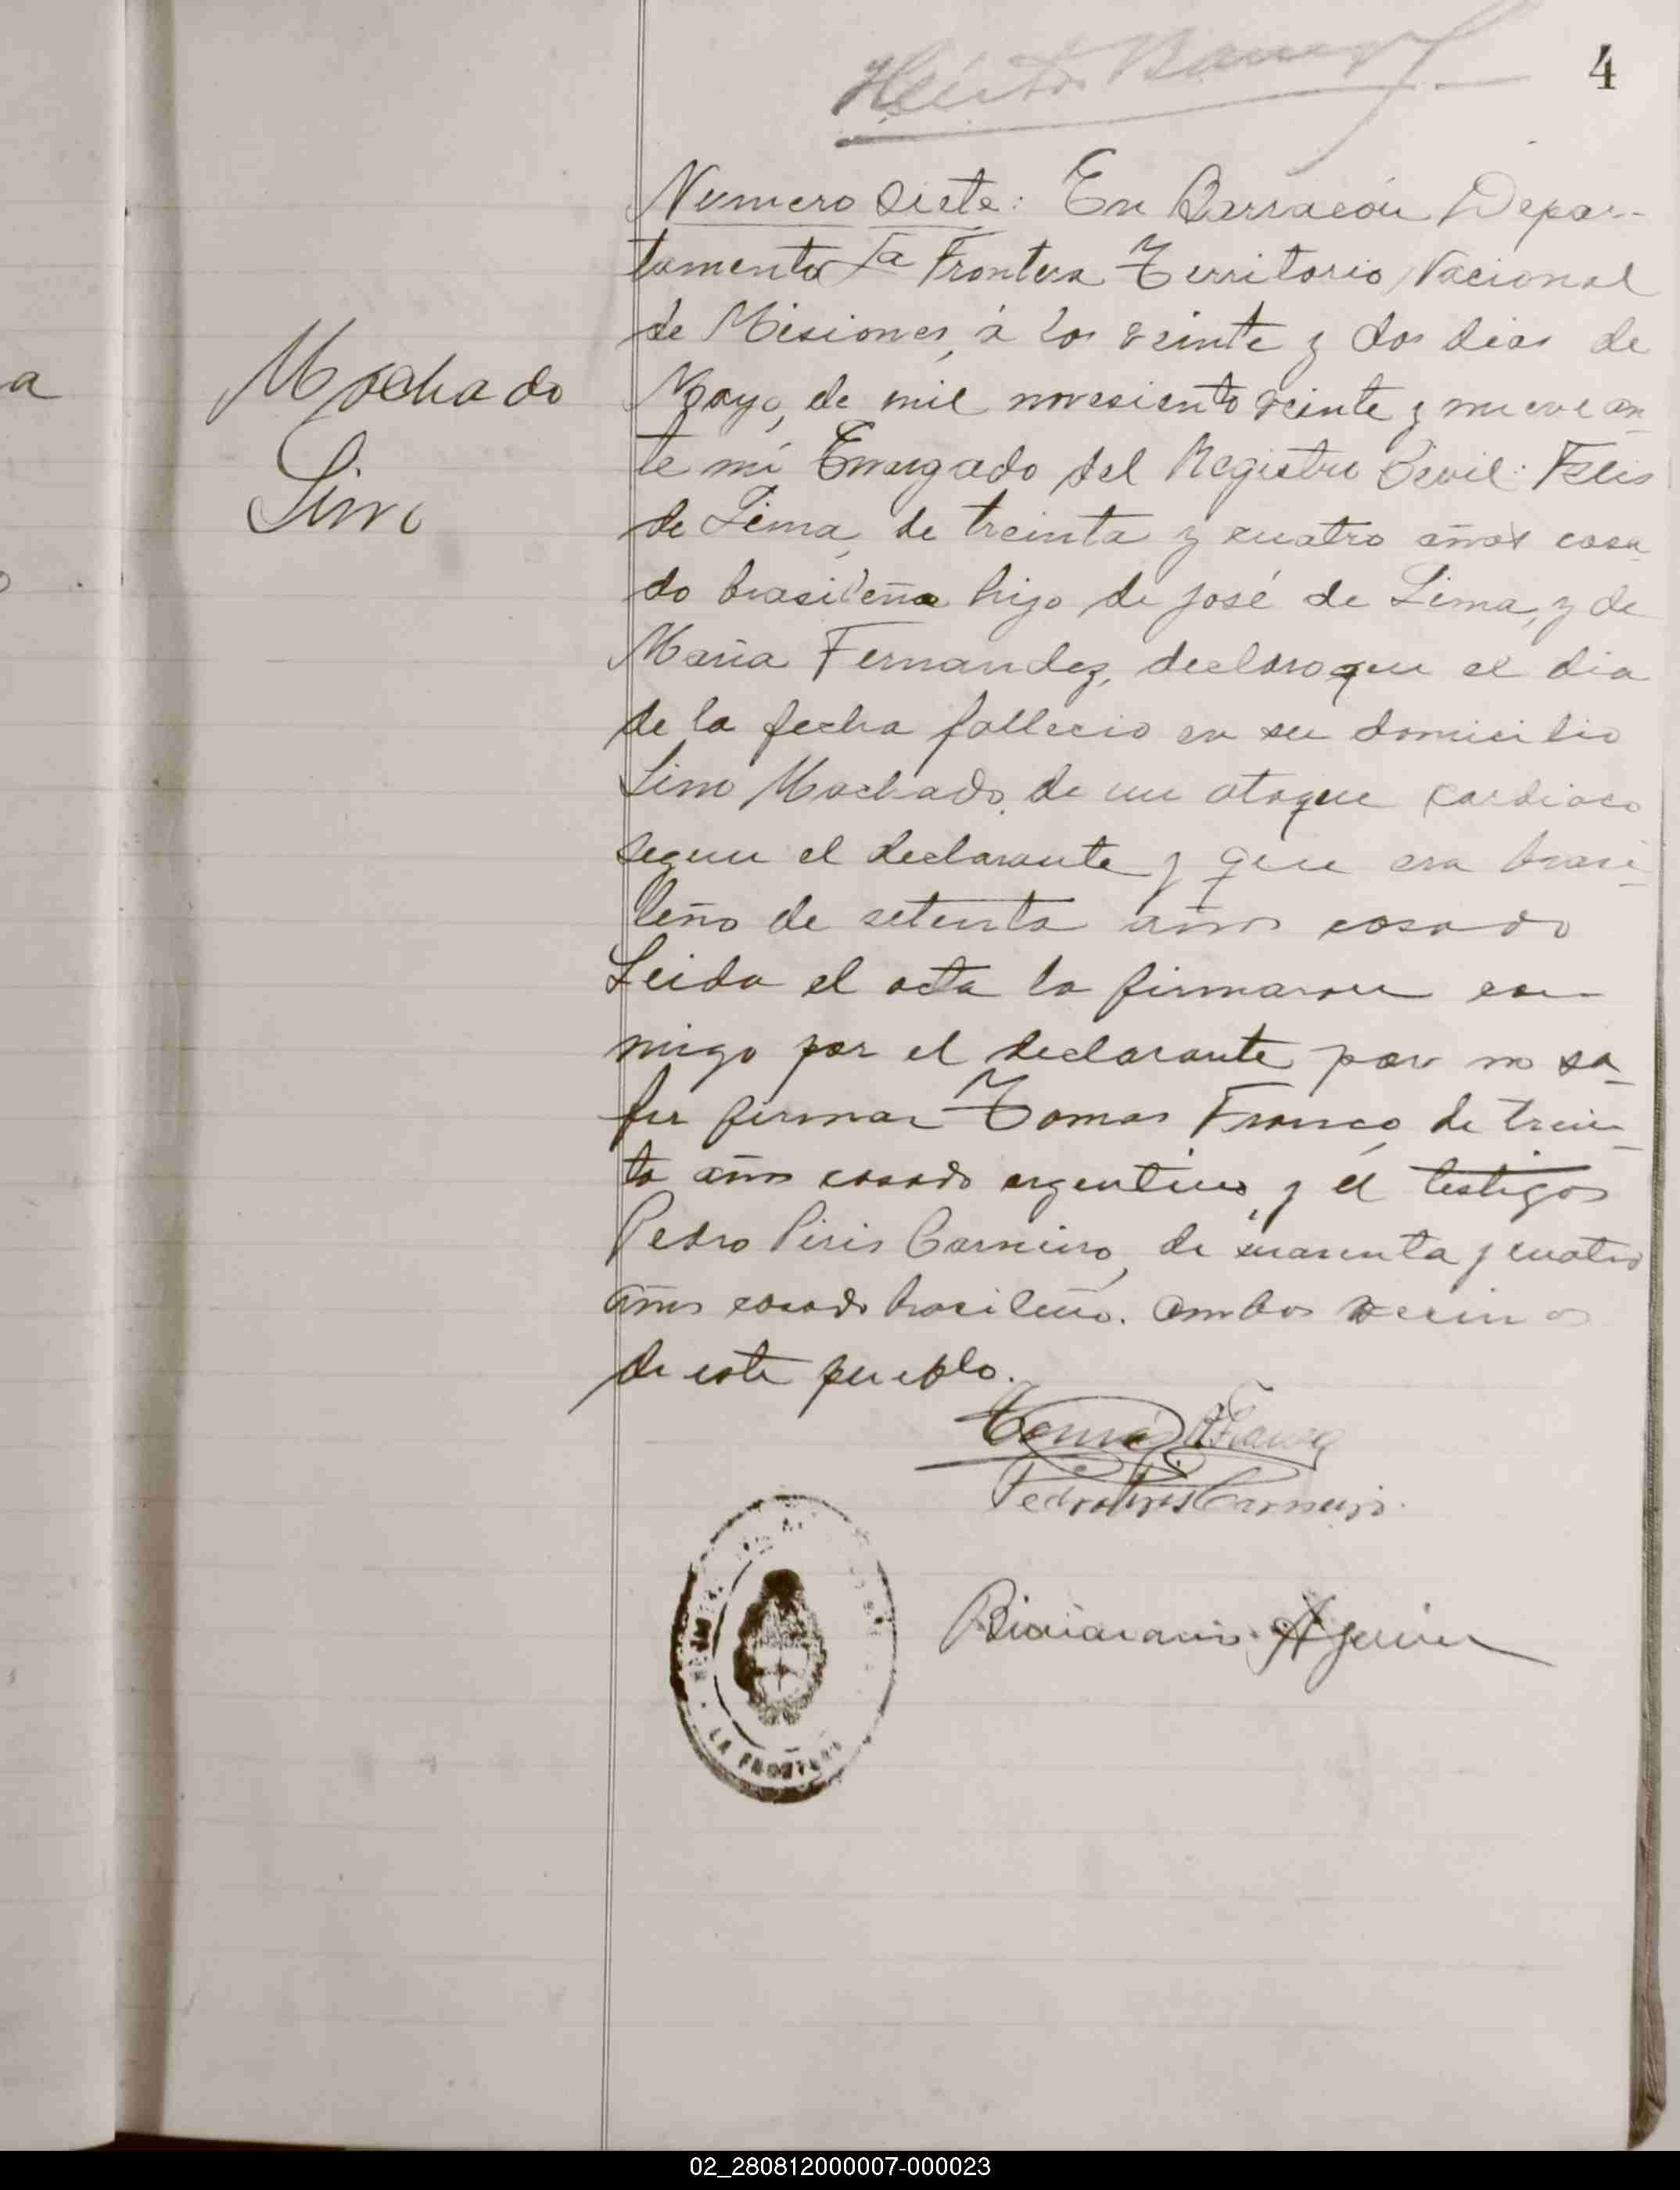 4
Numero siete: En Barracón Depar-
tamento La Frontera Territorio Nacional
de Misiones, á los veinte y dos dias de
Mayo, de mil novesiento veinte y nueve an-
te mi Encargado del Registro Civil: Felis
de Lima, de treinta y cuatro años casa
do brasileño hijo de José de Lima, y de
Maria Fernandez, declaro que el dia
de la fecha fallecio en su domicilio
Lino Machado, de un ataque cardiaco
segun el declarante y que era brasi-
leño de setenta años casado
Leida el acta la firmaron con-
migo por el declarante por no sa-
ber firmar Tomas Franco, de trein-
ta años casado argentino, y el testigos
Pedro Piris Carneiro, de cuarenta y cuatro
años casado brasileño. ambos vecinos
de este pueblo.
Machado
Lino
a
Tomás Franco
Pedro Piris Carneiro.
LA FRONTERA
02_280812000007-000023